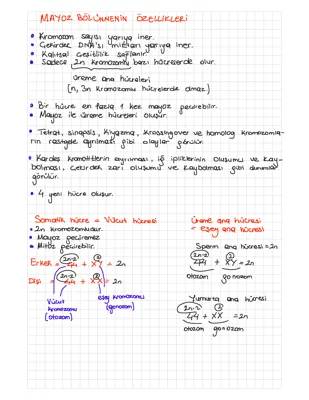 MAYOZ BÖLÜNMENİN ÖZELLİKLERİ
• Kromozom sayısı yarıya iner.
• Çekirdek DNA'sı miktarı yarıya iner.
• Kalıtsal çeşitlilik sağlanır.
• Sadece 2n kromozomlu bazı hücrelerde olur.
üreme ana hücreleri
(n, 3n kromozomlu hücrelerde olmaz.)
• Bir hücre en fazla 1 kez mayoz geçirebilir.
• Mayoz ile üreme hücreleri oluşur.
• Tetrat, sinapsis, kiyazma, krossingover ve homolog kromozomla-
rın rastgele ayrılması gibi olaylar görülür.
• Kardeş kromatitlerin ayrılması, iğ ipliklerinin oluşumu ve kay-
bolması, çekirdek zarı oluşumu ve kaybolması gibi durumlar
görülür.
• 4 yeni hücre oluşur.
Somatik hücre = Vücut hücresi
• 2n kromozomludur.
• Mayoz geçiremez
• Mitoz geçirebilir.
Erkek = 44 + XY = 2n
2n-2 2
Dişi = 44 + XX = 2n
2n-2 2
Vücut kromozomu (otozom)
eşey kromozomu (gonozom)
Üreme ana hücresi
= eşey ana hücresi
Sperm ana hücresi = 2n
2n-2 2
44 + XY = 2n
otozom gonozom
Yumurta ana hücresi
2n-2 2
44 + XX = 2n
otozom gonozom